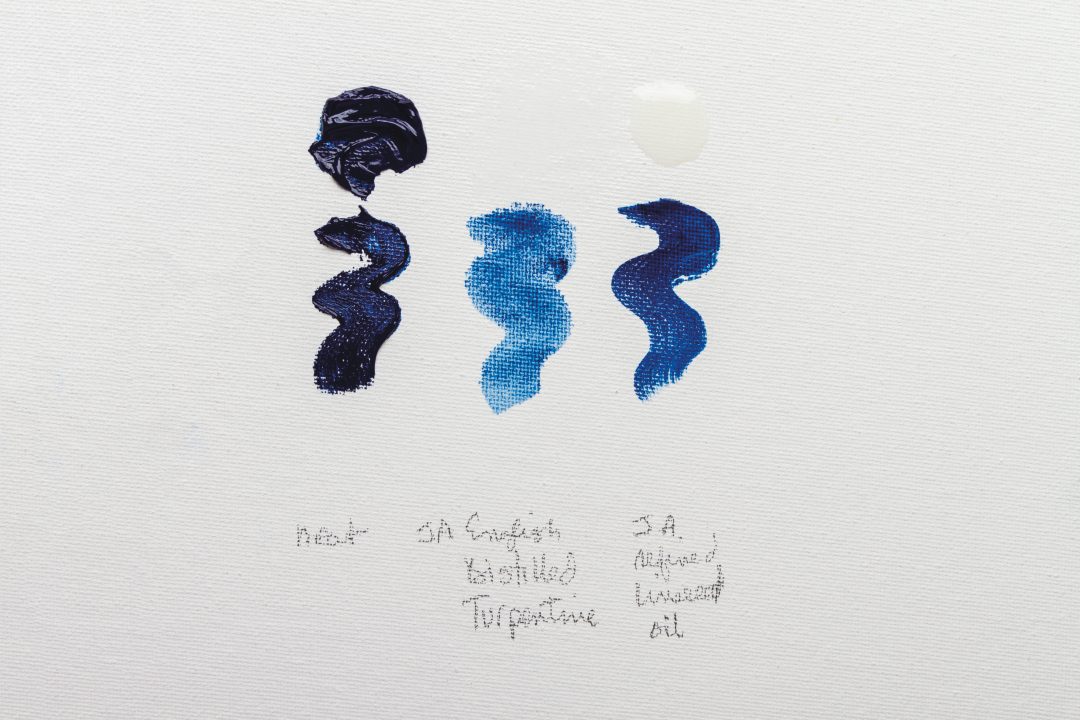 neat
JA English
Distilled
Turpentine
J.A.
refined
Linseed
oil